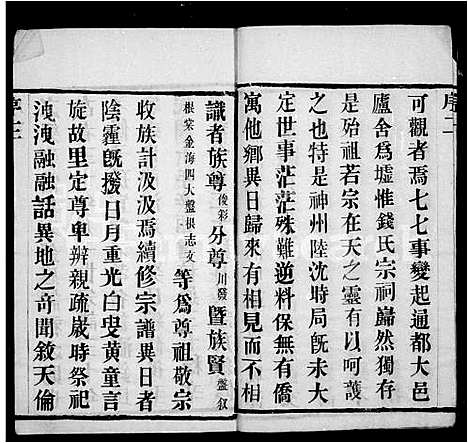 序二
可觀者焉七七事變起通都大邑
廬舍爲墟惟錢氏宗祠巋然獨存
是殆祖若宗在天之靈有以呵護
之也特是神州陸沈時局旣未大
定世事茫茫殊難逆料保無有僑
寓他鄉異日歸來有相見而不相
識者族尊俊彩分尊川發暨族賢盤叙
根棠金海四大盤根志文等爲尊祖敬宗
收族計汲汲焉續修宗譜異日者
陰霾旣撥日月重光白叟黃童言
旋故里定尊卑辨親疏歲時祭祀
洩洩融融話異地之奇聞敘天倫
序三